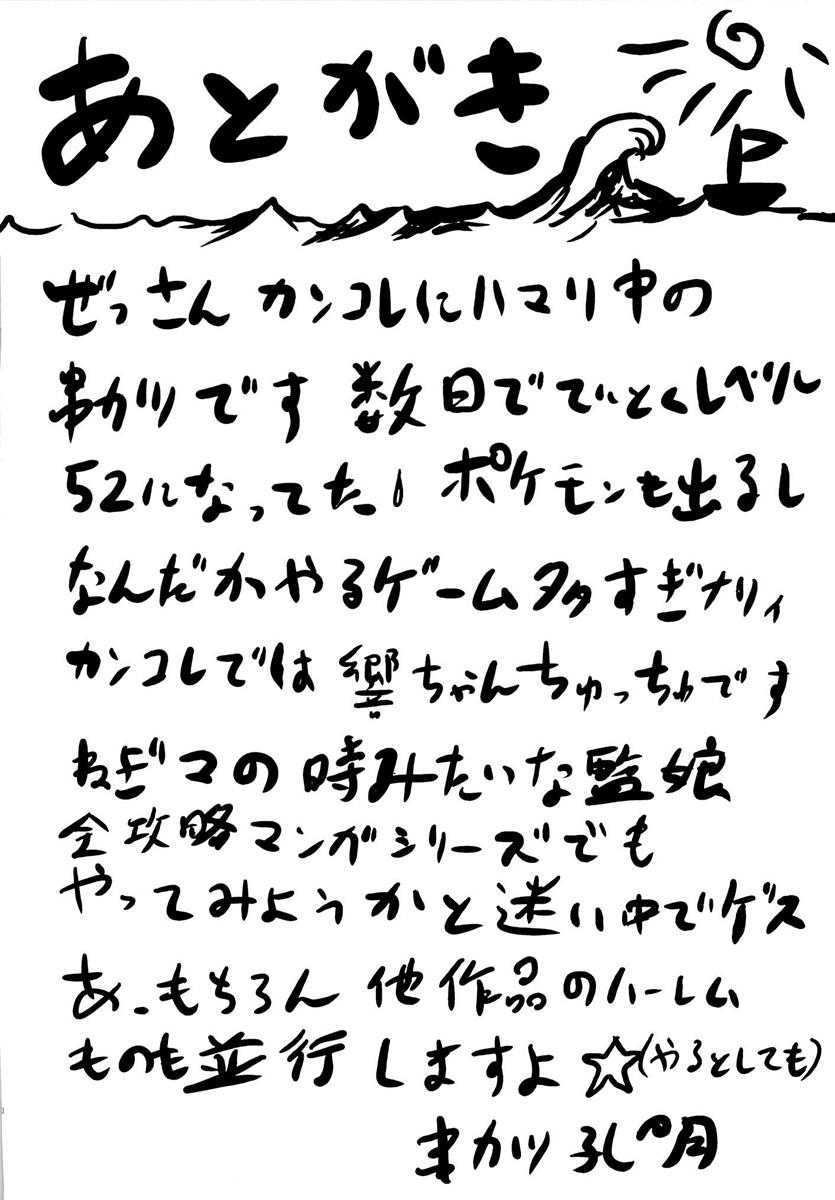 あとがき
ぜっさん カンコレにハマリ中の
串カツです 数日でていとくレベル
52になってた! ポケモンも出るし
なんだかやるゲーム多すぎナリィ
カンコレでは 響ちゃんちゅっちゅです
ねぎマの時みたいな監娘
全攻略マンガシリーズでも
やってみようかと迷い中でゲス
あ、もちろん 他作品のハーレム
ものも並行しますよ☆(やるとしても)
串カツ 孔明